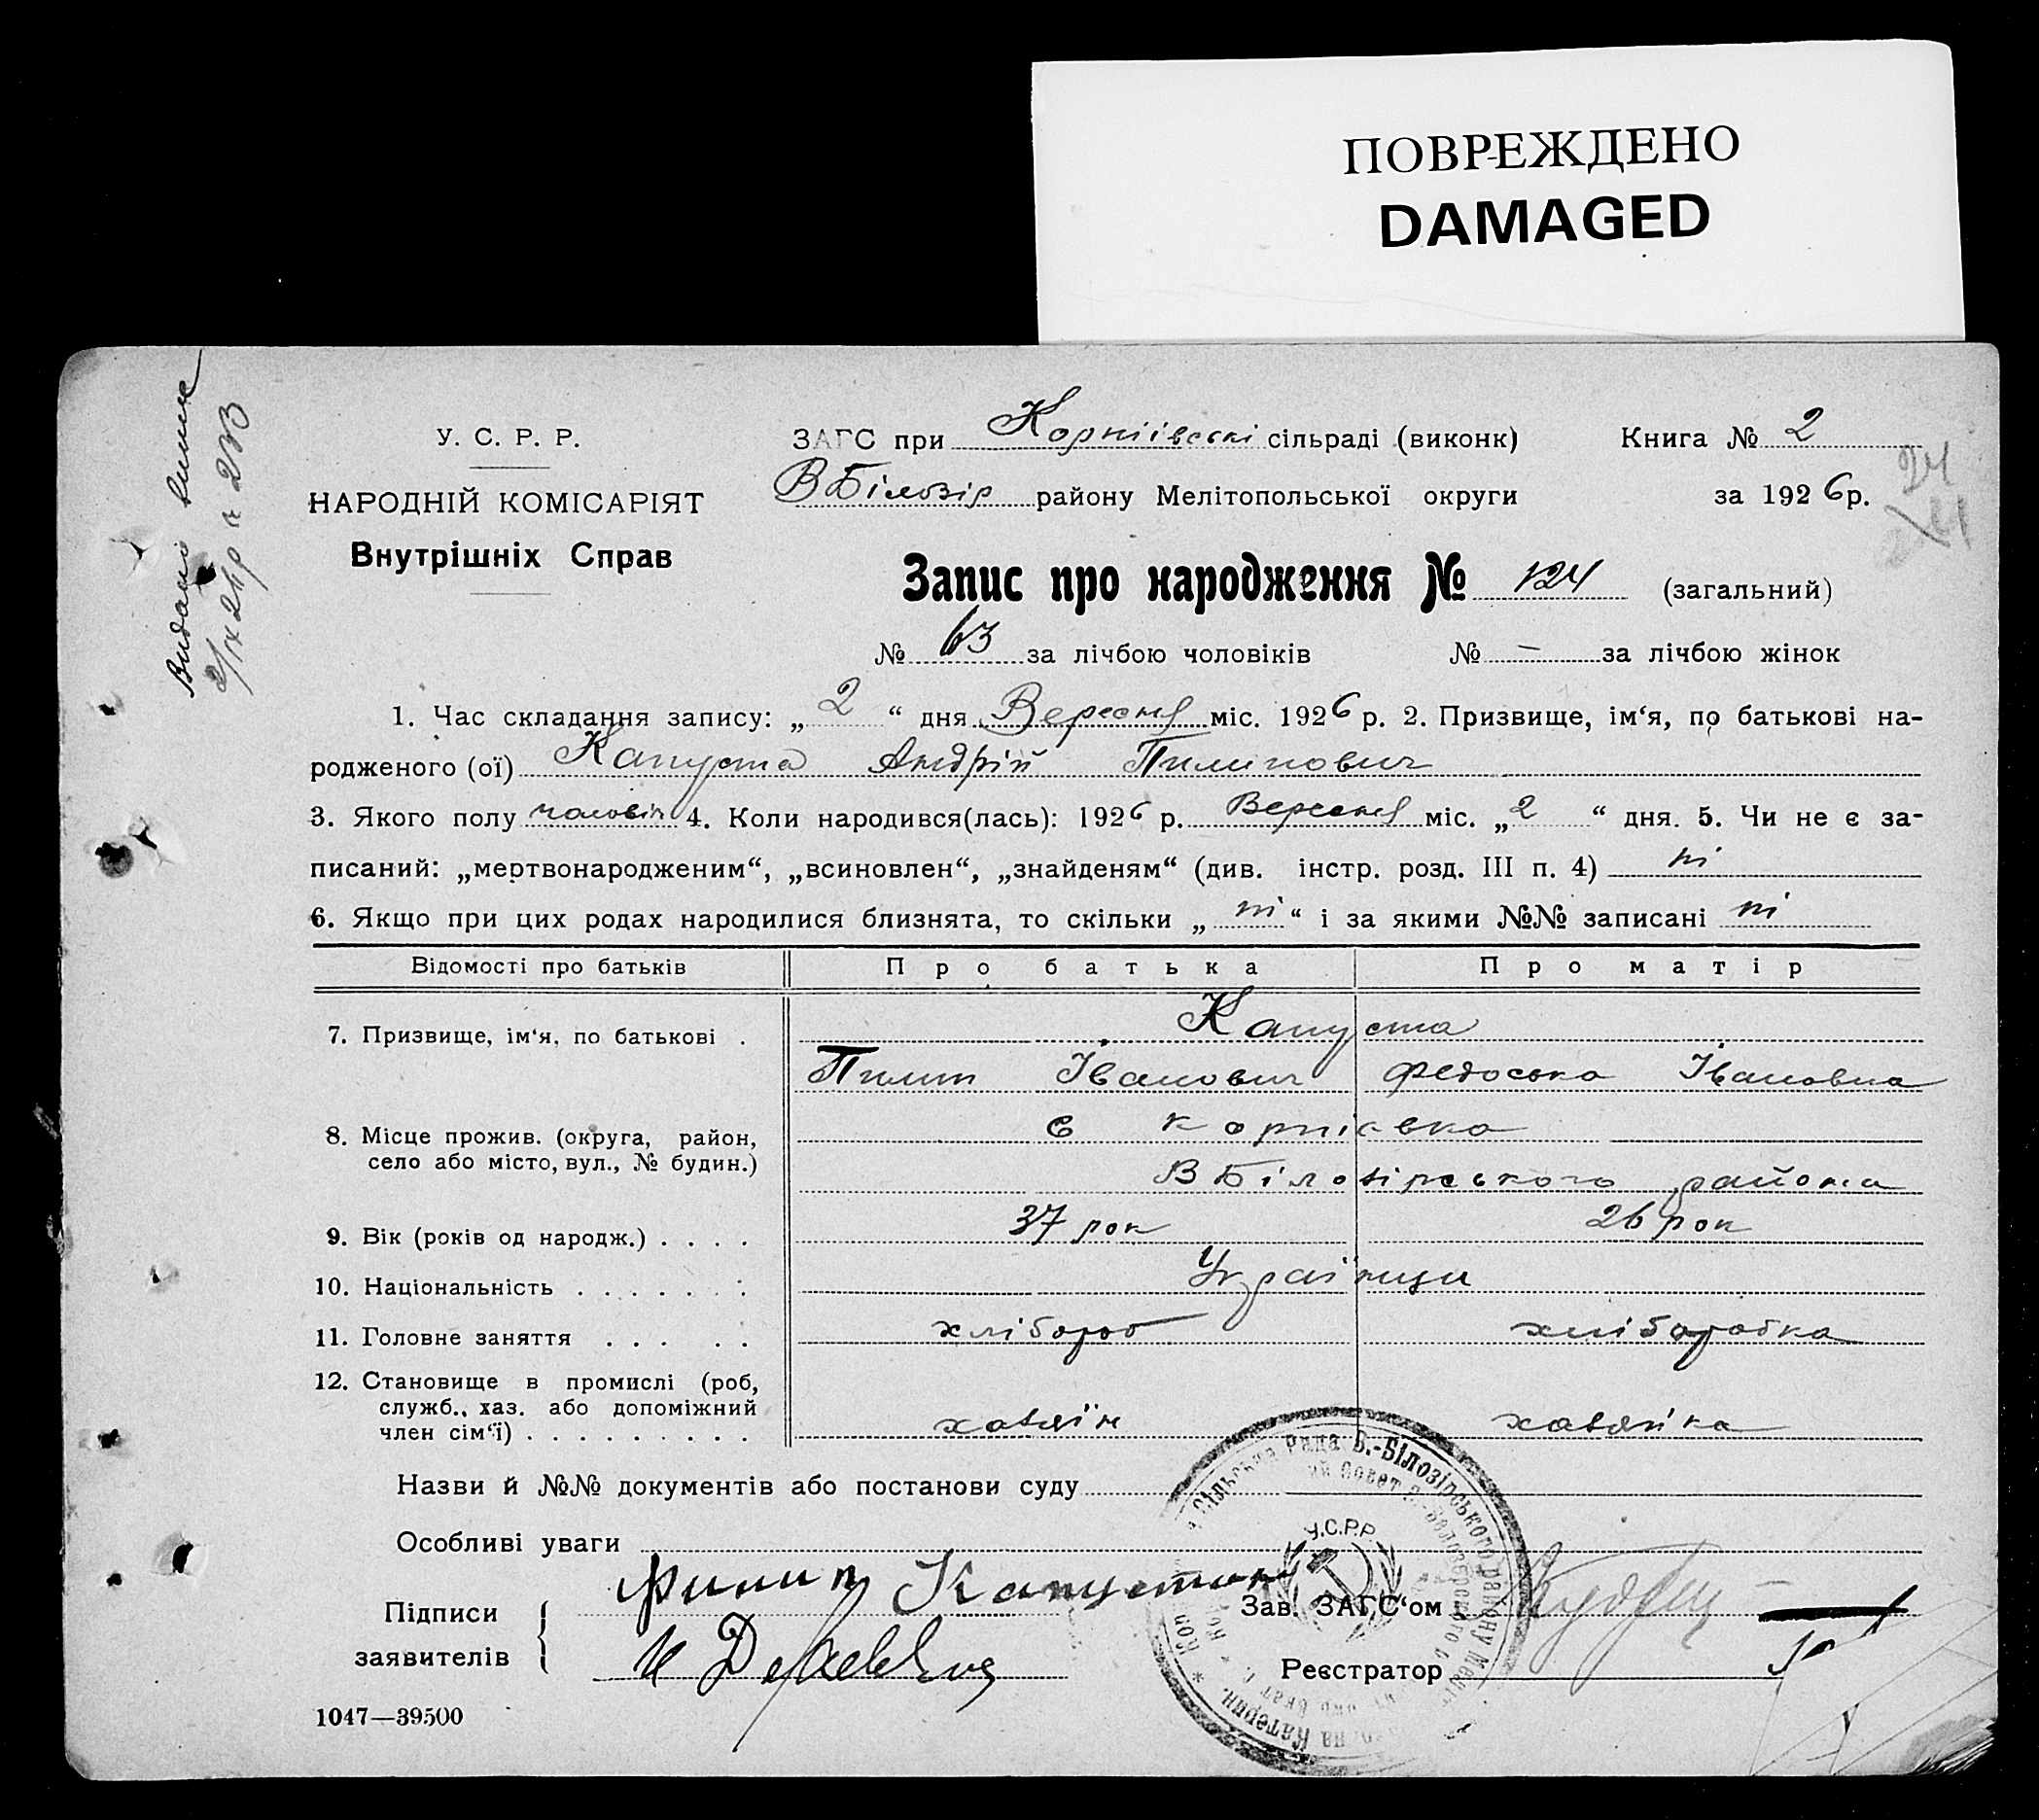 ПОВРЕЖДЕНО
DAMAGED
У. С. Р. Р.
НАРОДНІЙ КОМІСАРІЯТ
Внутрішніх Справ
ЗАГС при Корніївські сільраді (виконк) Книга № 2
ВБілозір району Мелітопольської округи за 1926 р.
Запис про народження № 124 (загальний)
№ 63 за лічбою чоловіків № — за лічбою жінок
1. Час складання запису: „ 2 “ дня Вересня міс. 1926 р. 2. Призвище, ім‘я, по батькові на-
родженого (ої) Капуста Андрій Пилипович
3. Якого полу чоловіч 4. Коли народився(лась): 1926 р. Вересня міс. „ 2 “ дня. 5. Чи не є за-
писаний: „мертвонародженим“, „всиновлен“, „знайденям“ (див. інстр. розд. III п. 4) ні
6. Якщо при цих родах народилися близнята, то скільки „ ні “ і за якими №№ записані ні
Відомості про батьків Про батька Про матір
7. Призвище, ім‘я, по батькові . Капуста
Пилип Іванович Федоська Івановна
8. Місце прожив. (округа, район, с Корніівка
село або місто, вул., № будин.) ВБілозірського района
9. Вік (років од народж.) . . . . 37 рок 26 рок
10. Національність . . . . . . . Українци
11. Головне заняття . . . . . хлібороб хліборобка
12. Становище в промислі (роб,
служб., хаз. або допоміжний
член сім‘ї) . . . . . . . . . хазяїн хазяйка
Назви й №№ документів або постанови суду
Особливі уваги
Підписи Филип Капуста Зав. ЗАГС‘ом
заявителів Реєстратор
Сільська Рада В.-Білозірського району
У.С.Р.Р
1047—39500